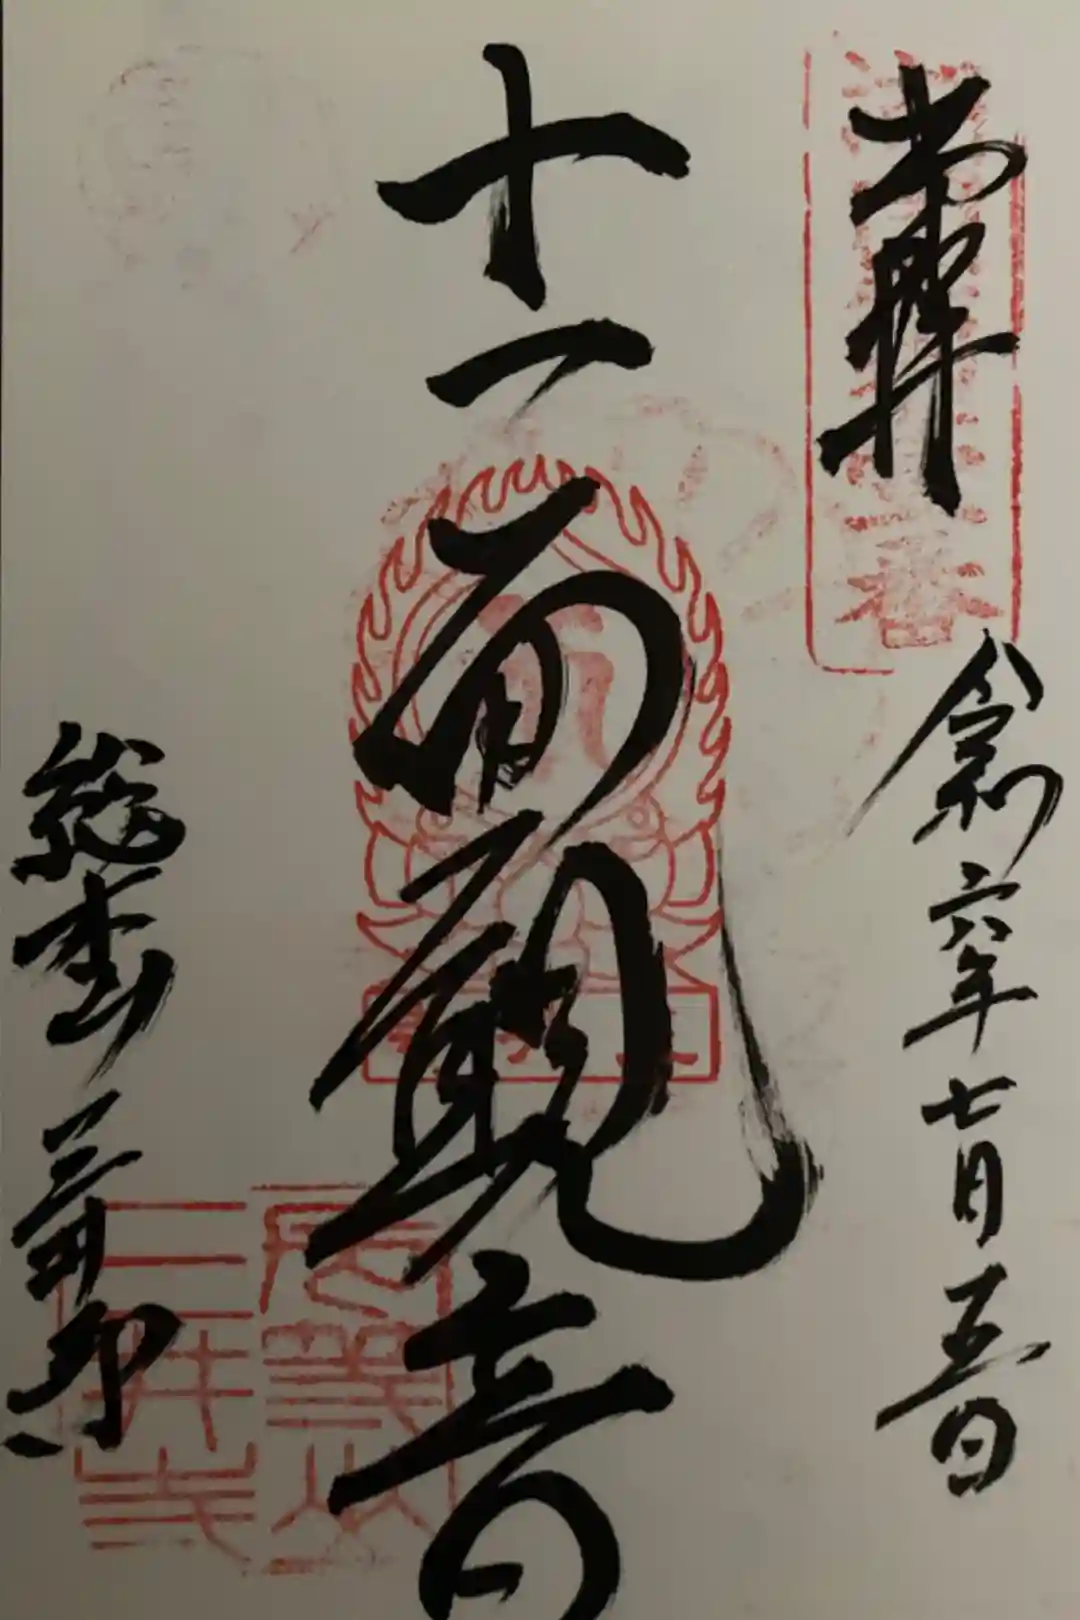 奉拝
令和六年七月五日
十一面観音
総本山 三井寺
長等山
三井寺